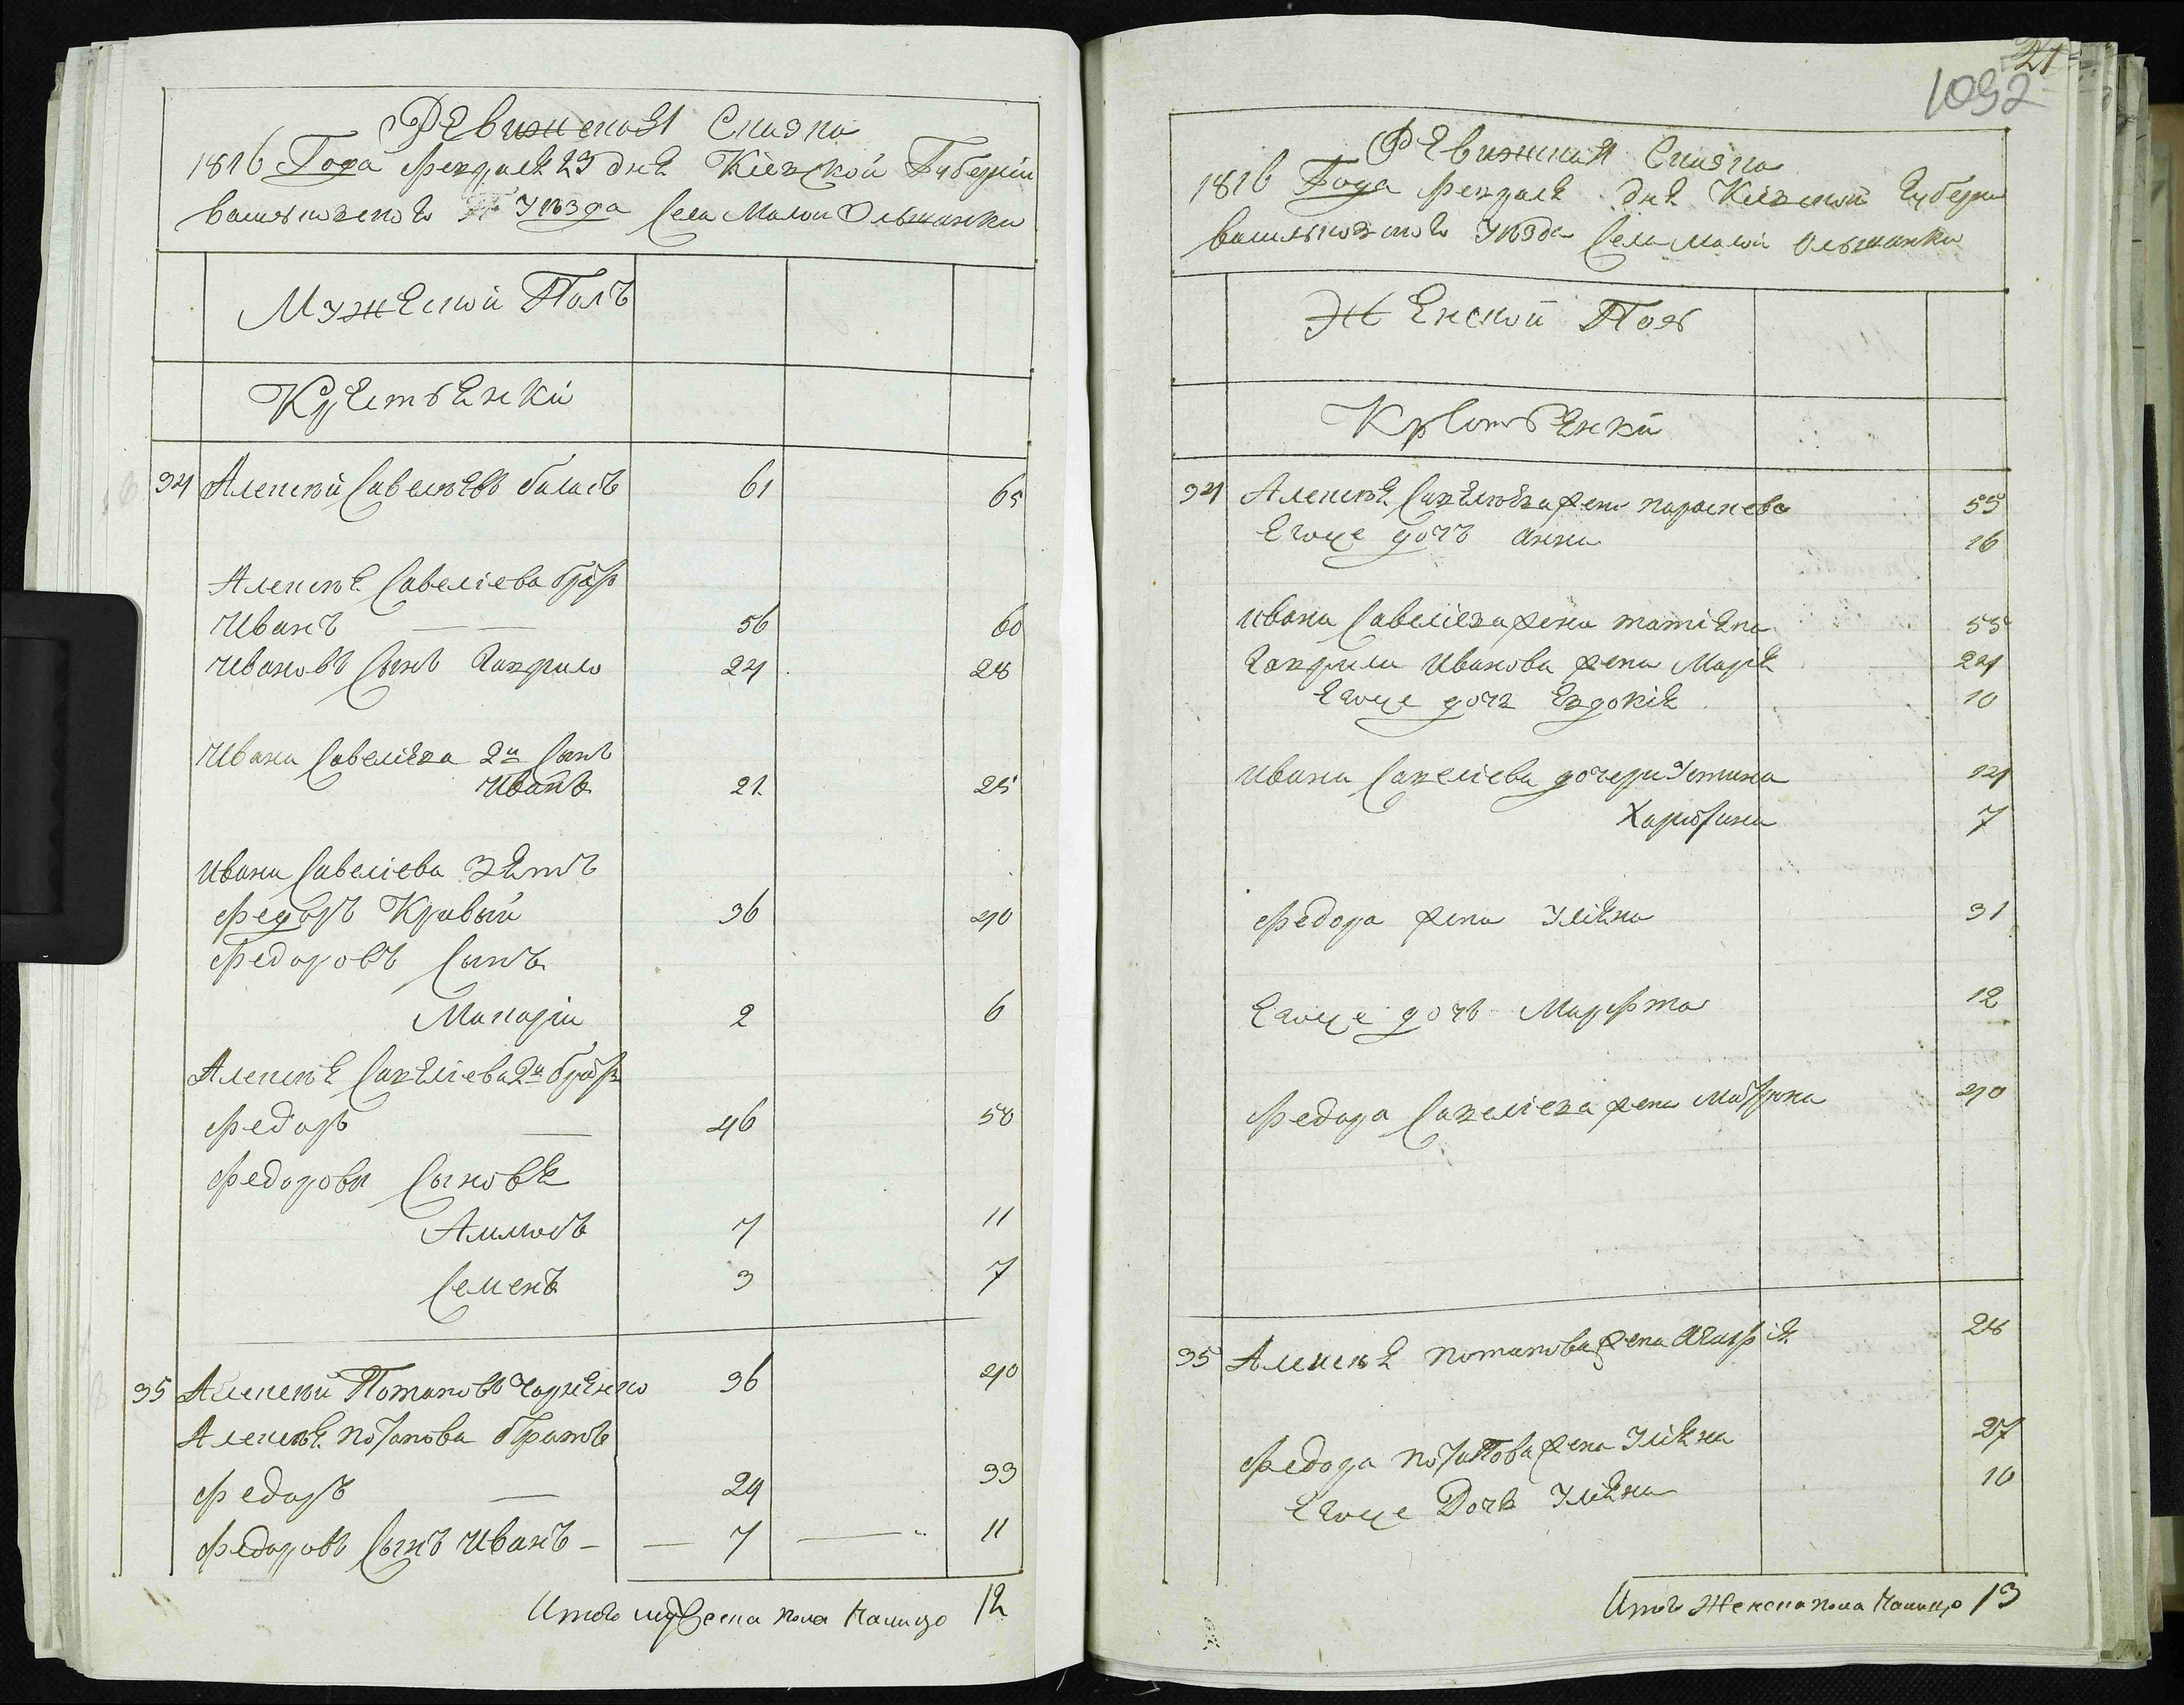 Ревижская Сказка
1816 Года февраля 23 дня Кіевской Губерніи
васильковского уезда Села Малои Ольшанки
Мужеской Полъ
Крестьянки
34 Алексѣй Савелиевъ баласъ 61 65
Алексѣя Савелиева братъ
Иванъ — — 56 60
Ивановъ Сынъ Гаврило 24 28
Ивана Савелиева 2й Сынъ
Иванъ 21 25
Ивана Савелиева зять
Федоръ Кривый 36 40
Федоровъ Сынъ
Макаріи 2 6
Алексѣя Савелиева 2й братъ
Федоръ — 46 50
Федоровы Сыновя
7 11
Семенъ 3 7
35 Алексѣй Потаповъ 36 40
Алексѣя Потапова братъ
Федоръ — 29 33
Федоровъ Сынъ Иванъ — — 7 — 11
Итого мужеска пола налицо 12
21
1092
Ревижская Сказка
1816 Года февраля дня Кіевской Губерни
васильковского уезда Села Малои Ольшанки
Женской Полъ
Крестьянки
34 Алексѣя Савелиева жена парасковя 55
Егоже дочъ анна 16
Ивана Савелиева жена татіяна 55
Гаврили Иванова жена Марія 24
Егоже дочъ Евдокія 10
Ивана Савелиева дочери Устина 14
Харитина 7
Федора жена Уліяна 31
Егоже дочъ Марфта 12
Федора Савелиева жена Матрина 40
35 Алексѣя потапова жена Агафія 28
Федора потапова жена Уліяна 27
Егоже Дочъ Уліяна 10
Итого Женска пола налицо 13